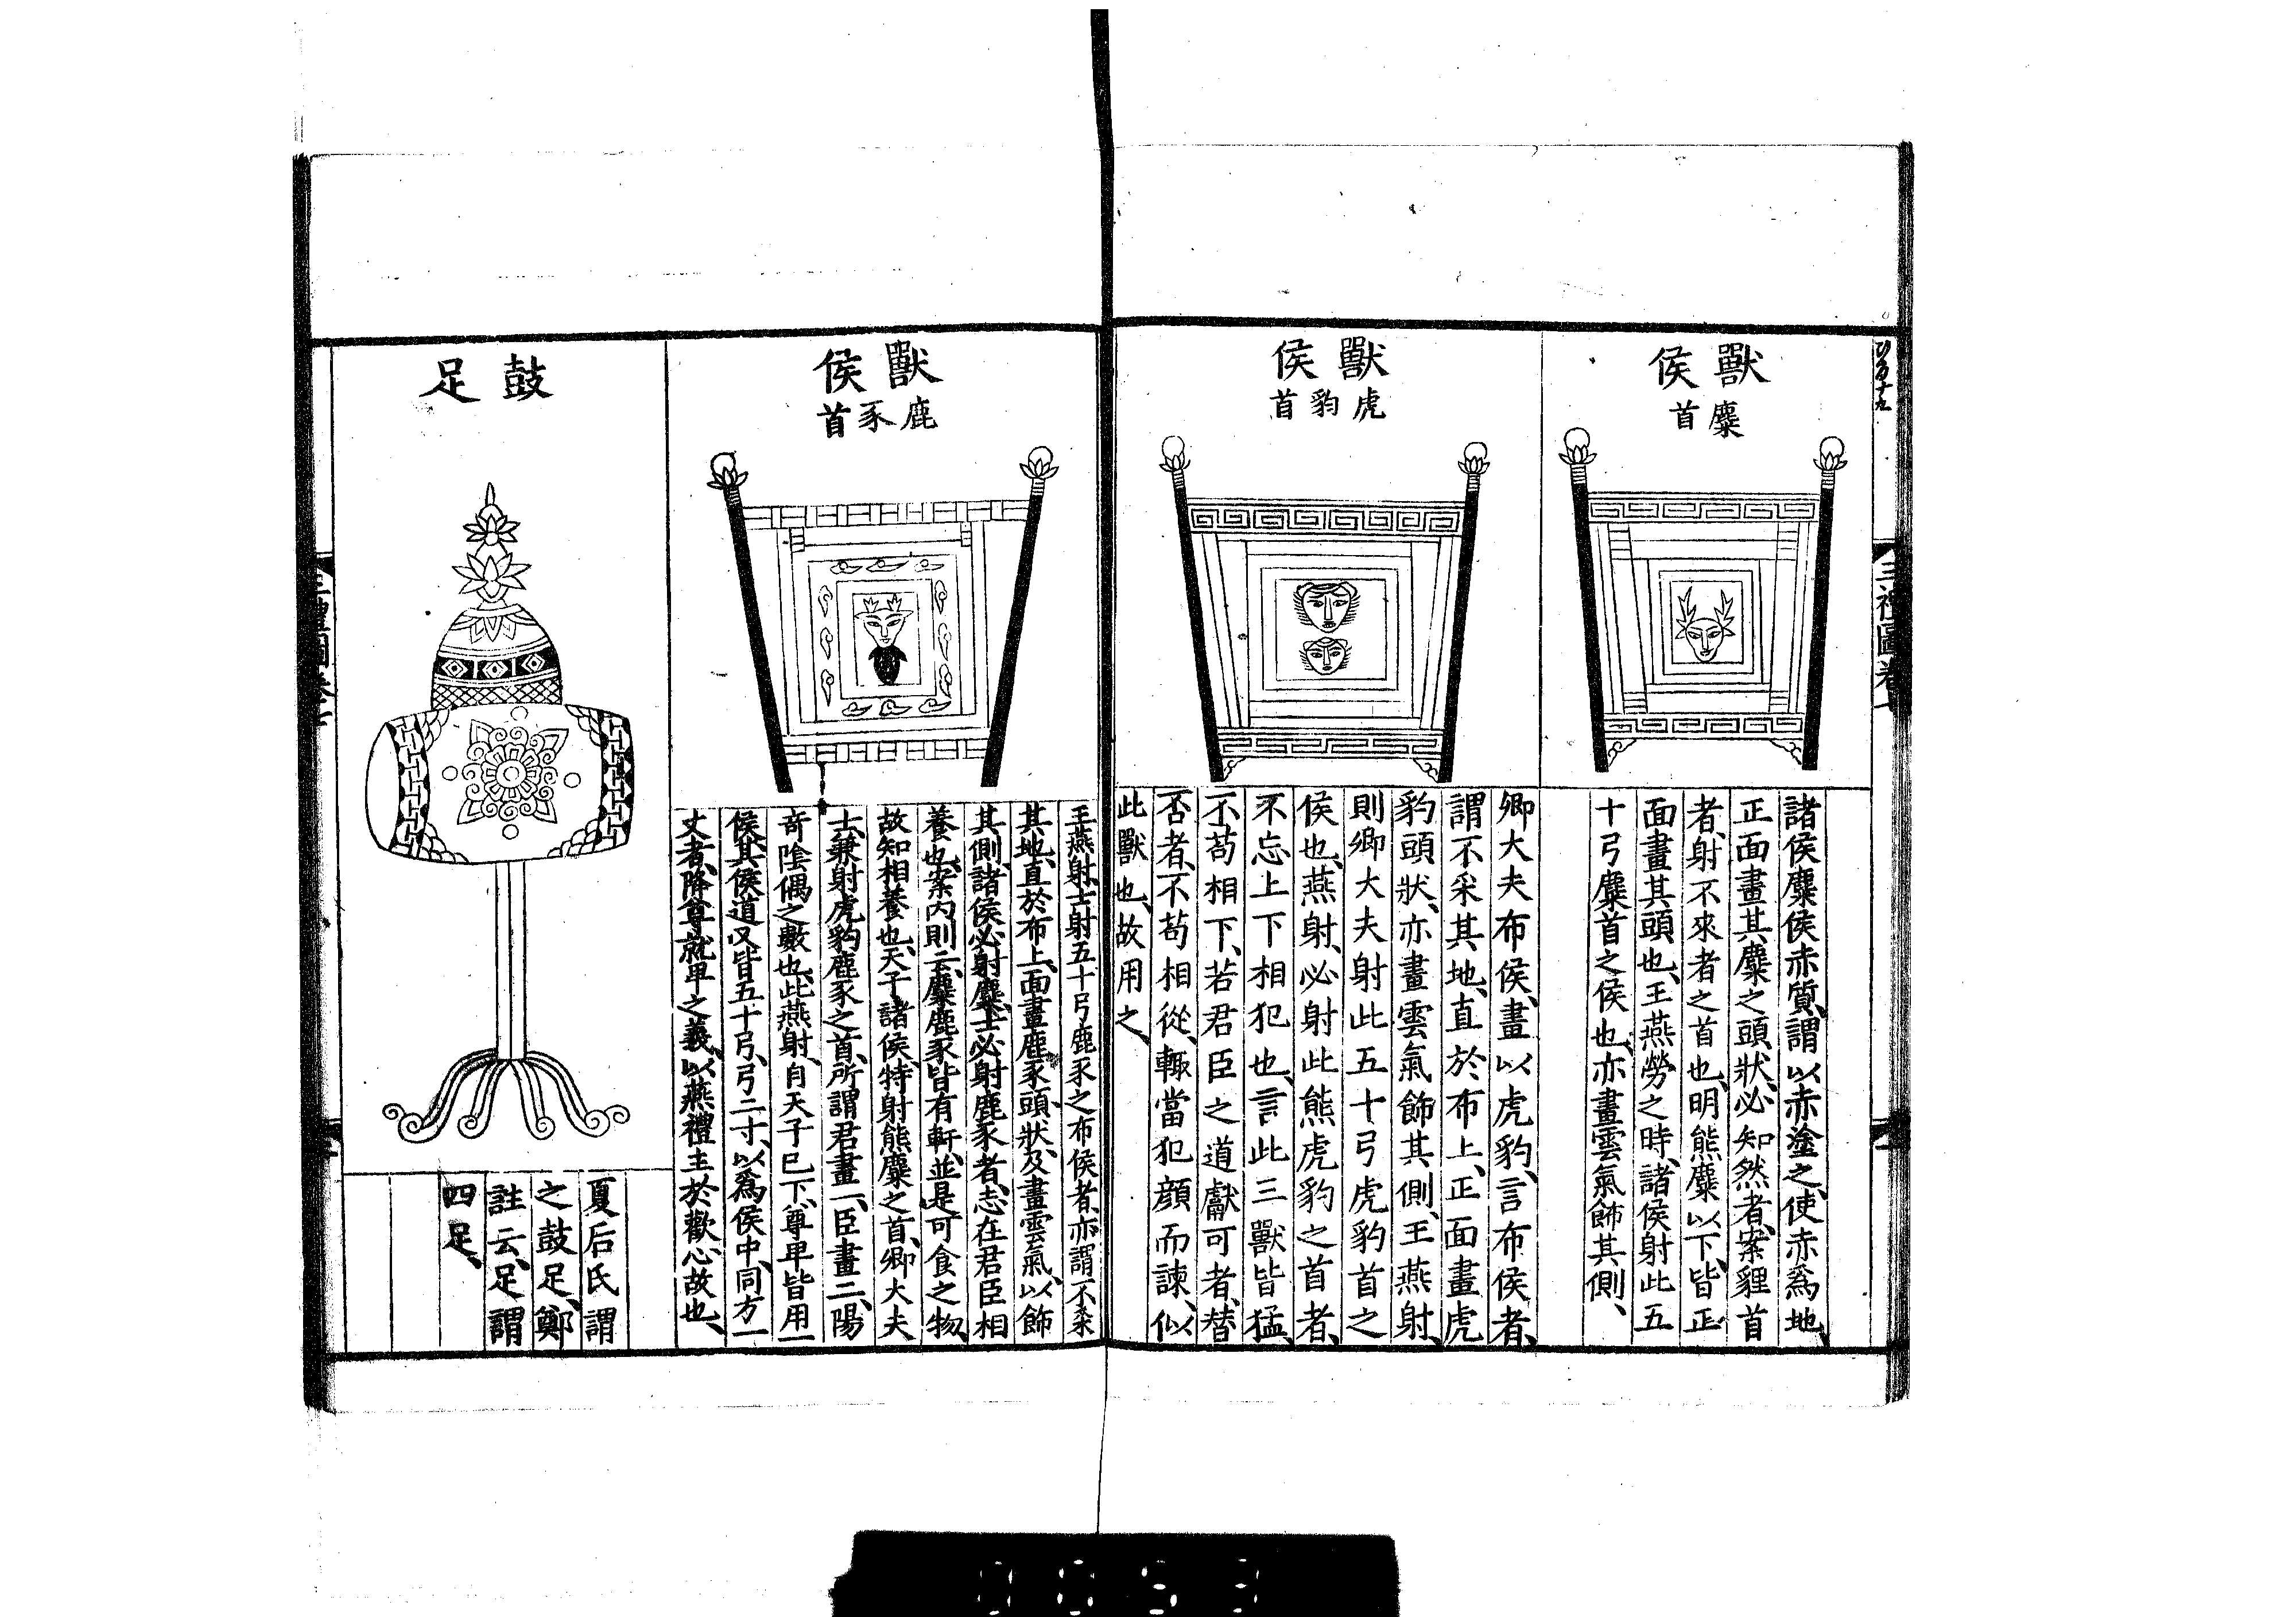 獸侯
麋首
諸侯麋侯赤質、謂以赤塗之、使赤爲地、
正面畫其麋之頭狀、必知然者、案貍首
者、射不來者之首也、明熊麋以下、皆正
面畫其頭也、王燕勞之時、諸侯射此五
十弓麋首之侯也、亦畫雲氣飾其側、
獸侯
虎豹首
卿大夫布侯、畫以虎豹、言布侯者、
謂不采其地、直於布上、正面畫虎
豹頭狀、亦畫雲氣飾其側、王燕射、
則卿大夫射此五十弓虎豹首之
侯也、燕射、必射此熊虎豹之首者、
不忘上下相犯也、言此三獸皆猛、
不苟相下、若君臣之道、獻可者、替
否者、不苟相從、輙當犯顔而諫、似
此獸也、故用之、
獸侯
鹿豕首
王燕射、士射五十弓鹿豕之布侯者、亦謂不采
其地、直於布上、面畫鹿豕頭狀、及畫雲氣、以飾
其側、諸侯必射麋、士必射鹿豕者、志在君臣相
養也、案内則云、麋鹿豕皆有軒、並是可食之物、
故知相養也、天子諸侯、特射熊麋之首、卿大夫
士、兼射虎豹鹿豕之首、所謂君畫一、臣畫二、陽
奇隂偶之數也、此燕射、自天子已下、尊卑皆用一
侯、其侯道又皆五十弓、弓二寸、以爲侯中、同方一
丈者、降尊就卑之義、以燕禮主於歡心故也、
鼓足
夏后氏謂
之鼓足、鄭
註云、足謂
四足、
三禮圖卷